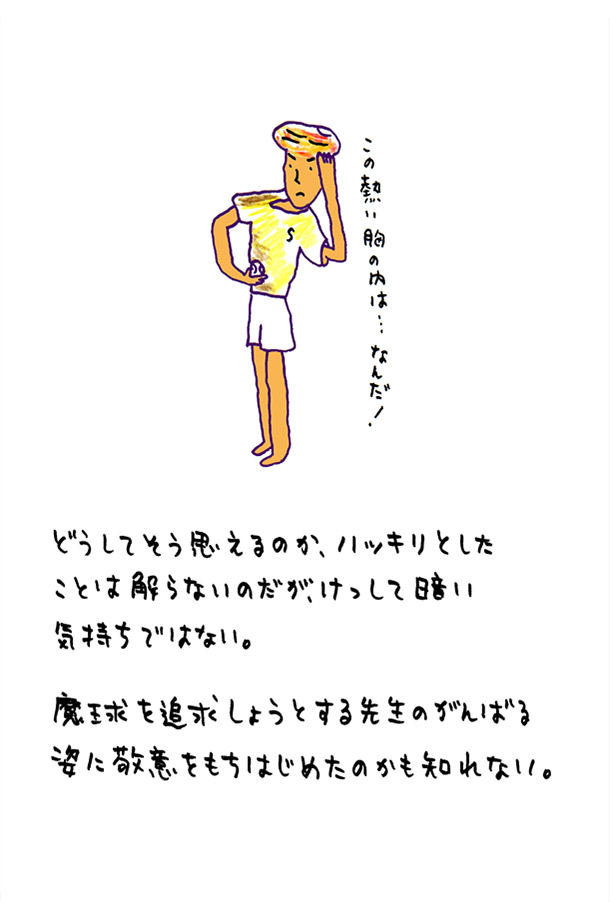 この熱い胸の内は…なんだ！
S
どうしてそう思えるのか、ハッキリとした
ことは解らないのだが、けっして暗い
気持ちではない。
魔球を追求しょうとする先生のがんばる
姿に敬意をもちはじめたのかも知れない。